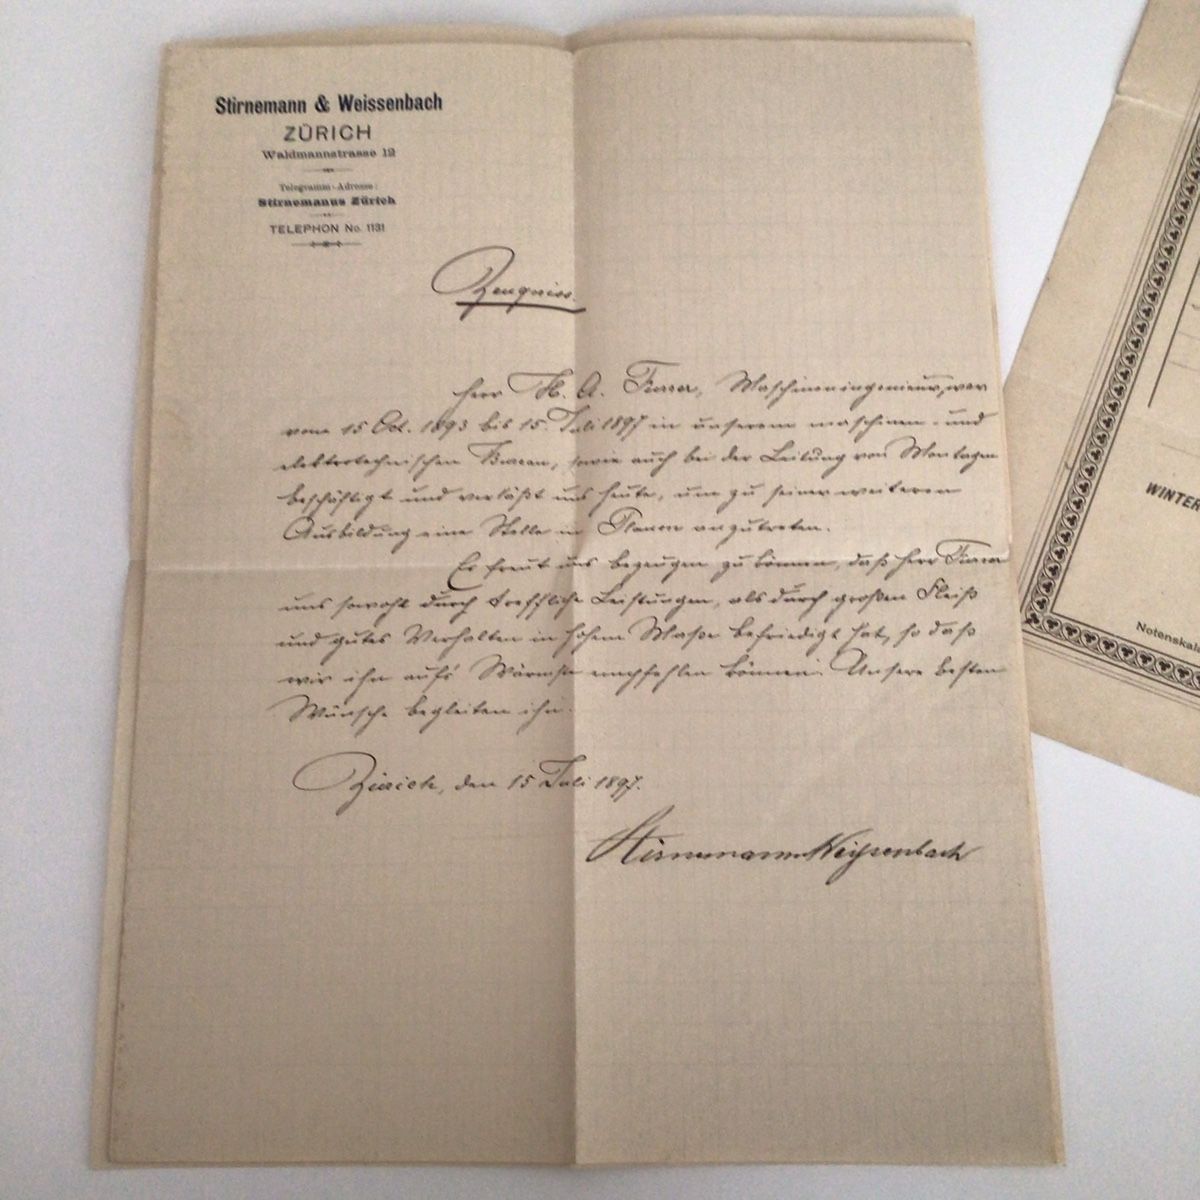 Stirnemann & Weissenbach
ZÜRICH
Waldmannstrasse 12
Telegramm-Adresse:
Stirnemanns Zürich
TELEPHON No. 1131
Zeugniss.
Herr A. Furrer, Maschineningenieur, war
vom 15 Oct. 1893 bis 15. Juli 1897 in unserem maschinen- und
elektrotechnischen Bureau, sowie auch bei der Leitung von Montagen
beschäftigt und verläßt uns heute, um zu seiner weiteren
Ausbildung eine Stelle in anzutreten.
Es freut uns bezeugen zu können, daß Herr Furrer
uns sowohl durch treffliche Leistungen, als durch großen Fleiß
und gutes Verhalten in hohem Maße befriedigt hat, so daß
wir ihn auf's Wärmste empfehlen können. Unsere besten
Wünsche begleiten ihn.
Zürich, den 15 Juli 1897.
Stirnemann Weissenbach
WINTER
Notenskala